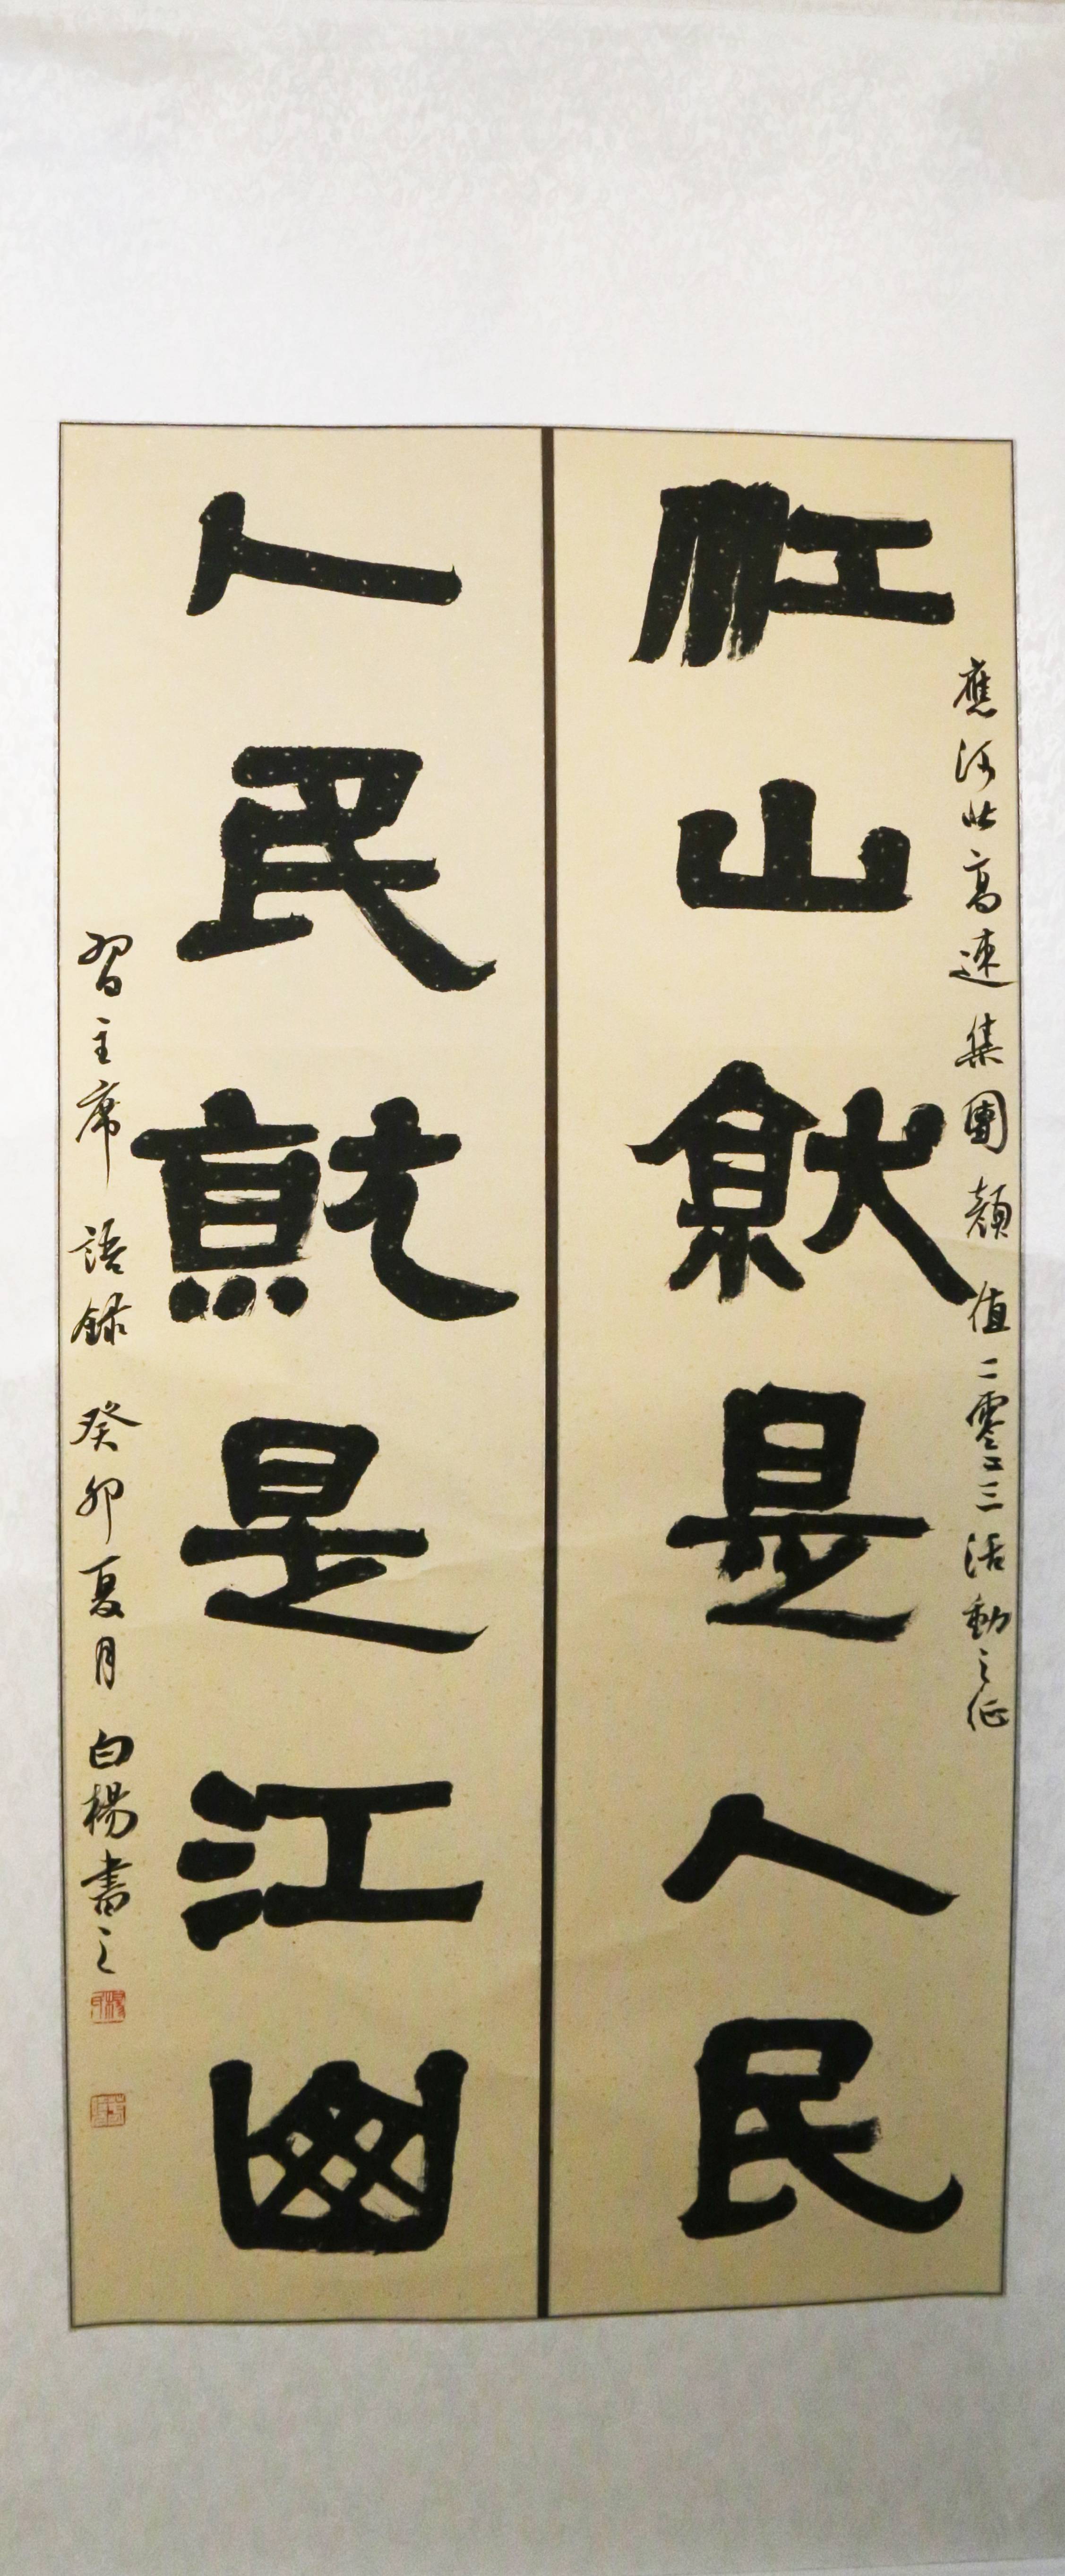 應河北高速集團顏值二零二三活動之征
江山就是人民
人民就是江山
習主席語錄 癸卯夏月 白楊書之